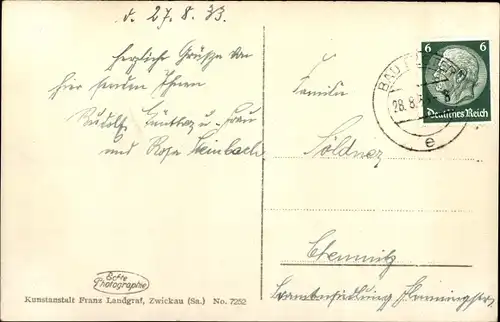 d. 27.8.33.
herzliche Grüße von
hier senden Ihnen
Rudolf Günther u. Frau
und Rosa Steinbach
Familie
Söldner
Chemnitz
6 6
Deutsches Reich
BAD
28.8.
e
Echte
Photographie
Kunstanstalt Franz Landgraf, Zwickau (Sa.) No. 7252